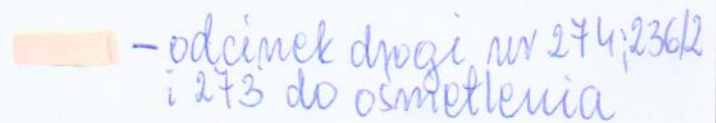 – odcinek drogi nr 274; 236/2
i 273 do oświetlenia